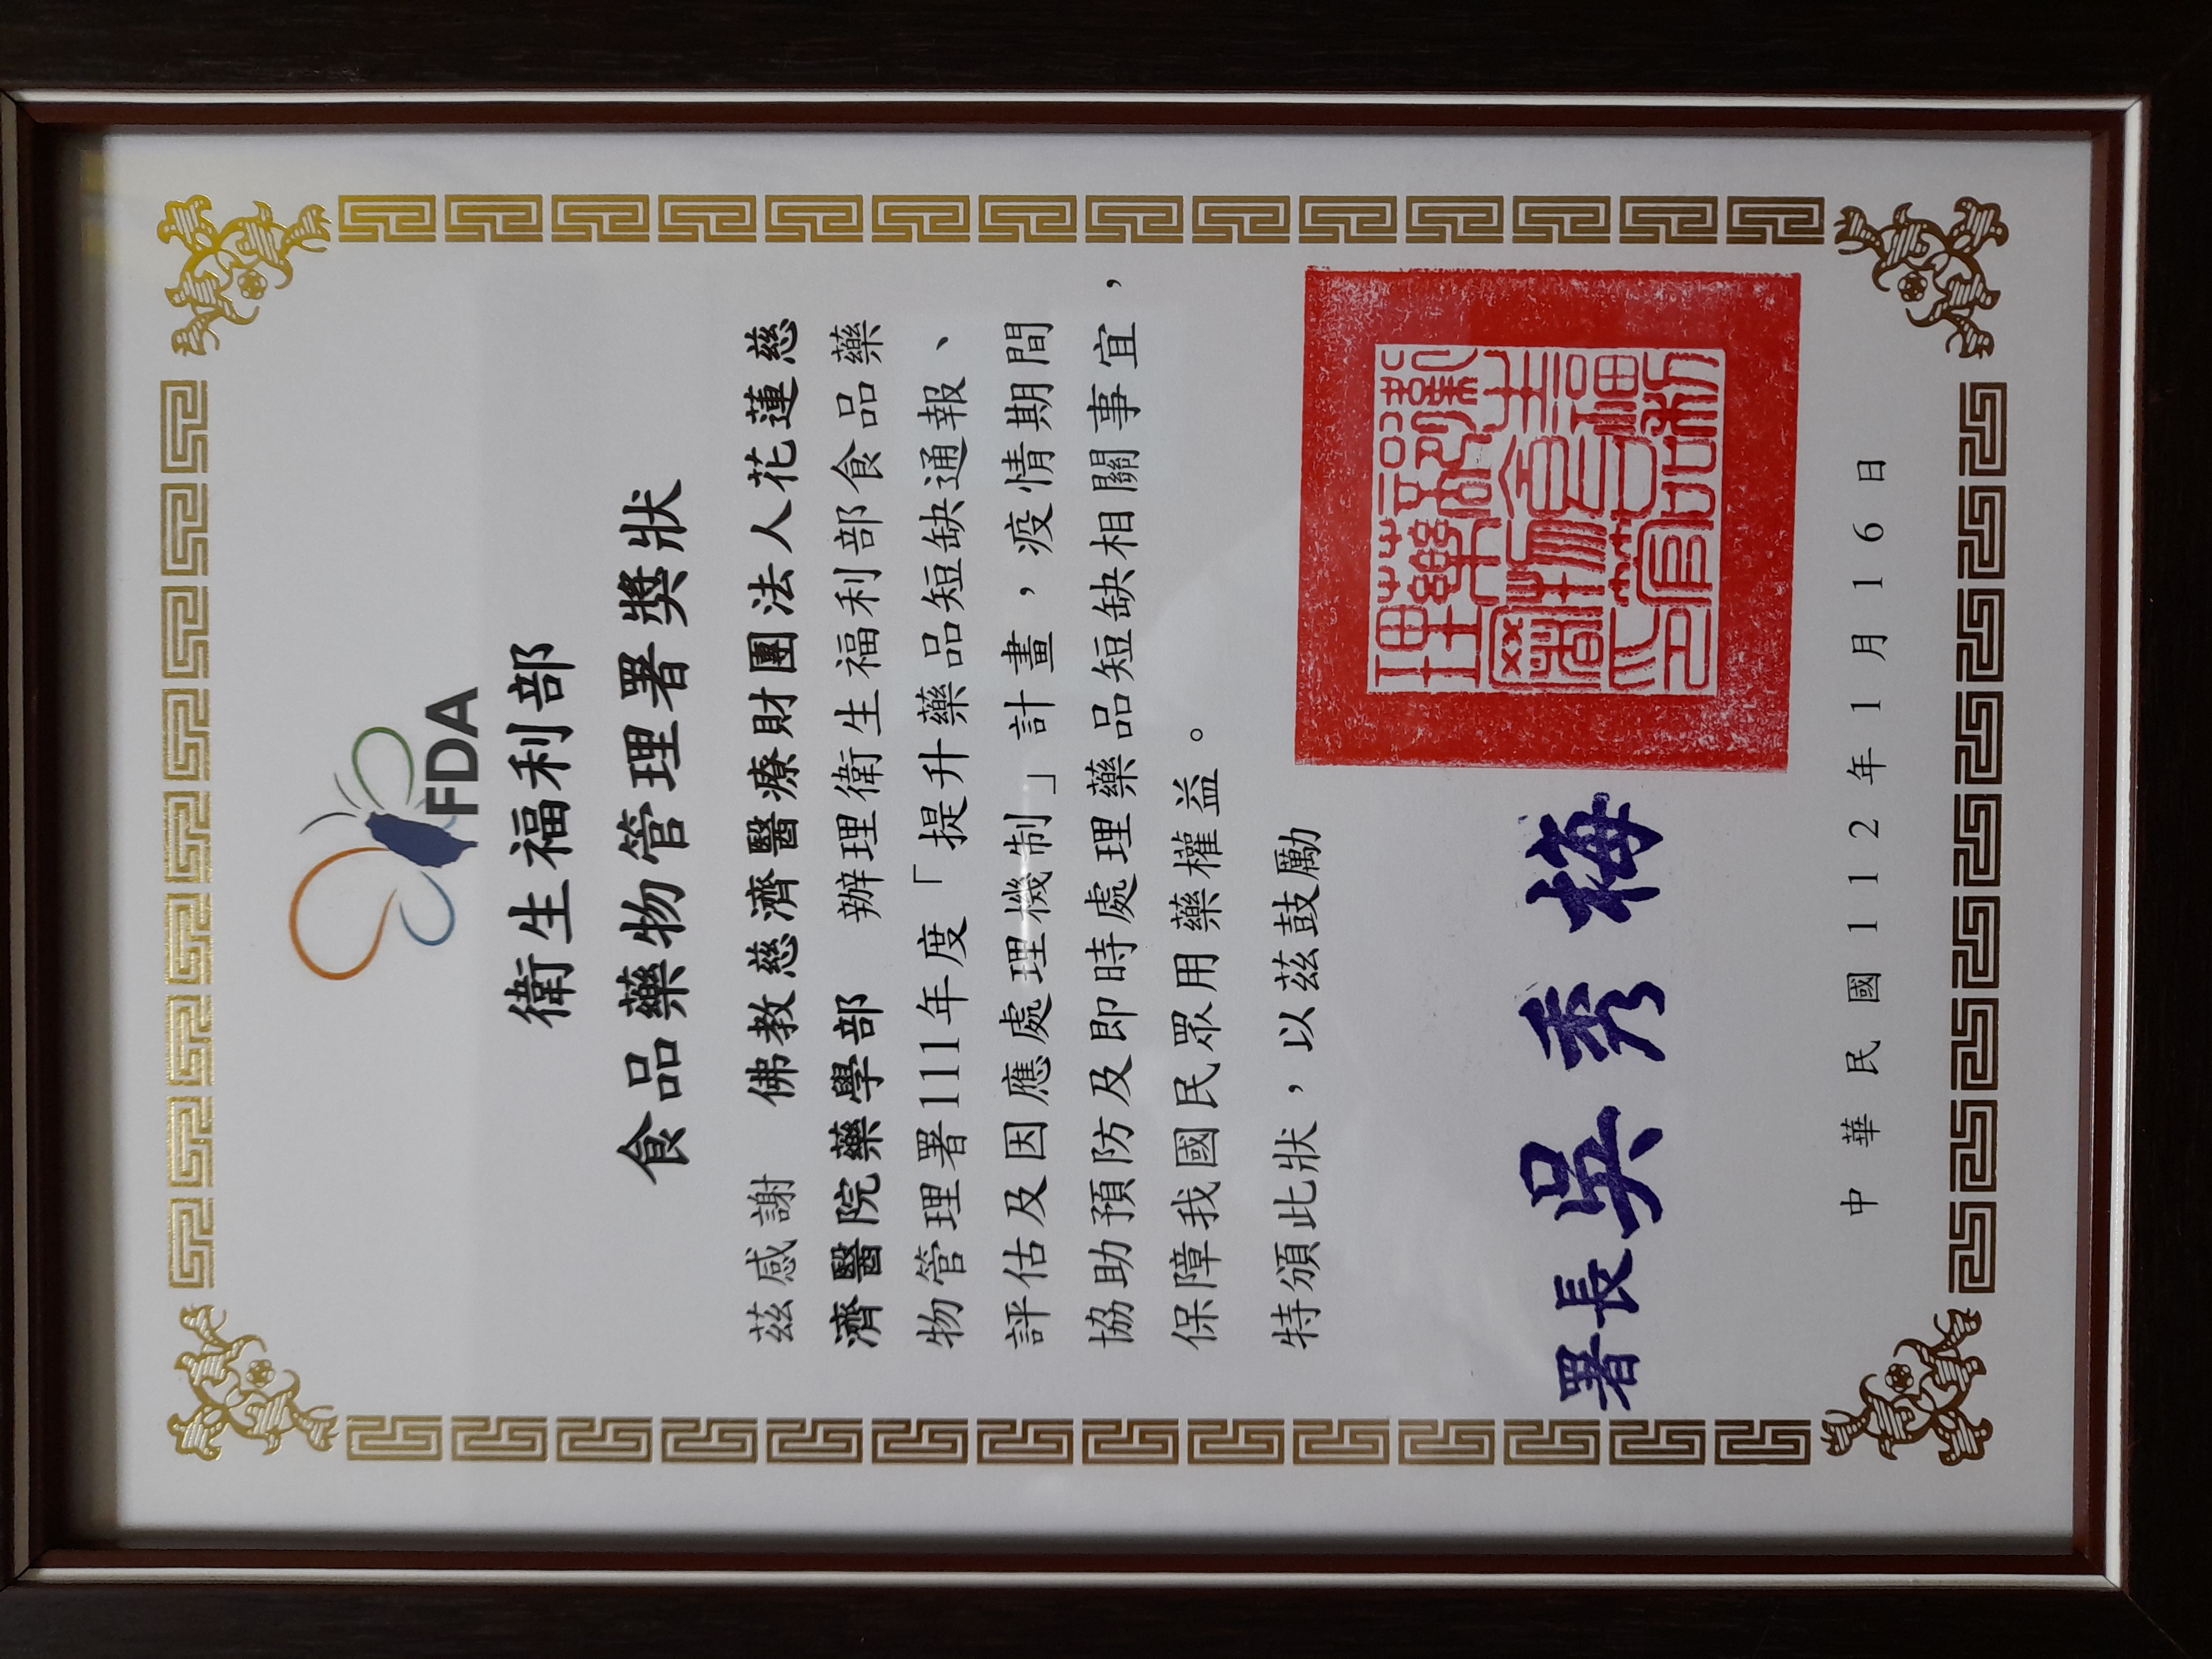 FDA
衛生福利部
食品藥物管理署獎狀
茲感謝 佛教慈濟醫療財團法人花蓮慈
濟醫院藥學部 辦理衛生福利部食品藥
物管理署111年度「提升藥品短缺通報、
評估及因應處理機制」計畫,疫情期間
協助預防及即時處理藥品短缺相關事宜,
保障我國民眾用藥權益。
特頒此狀,以茲鼓勵
署長吳秀梅
衛生福利部食品藥物管理署印
中華民國112年1月16日